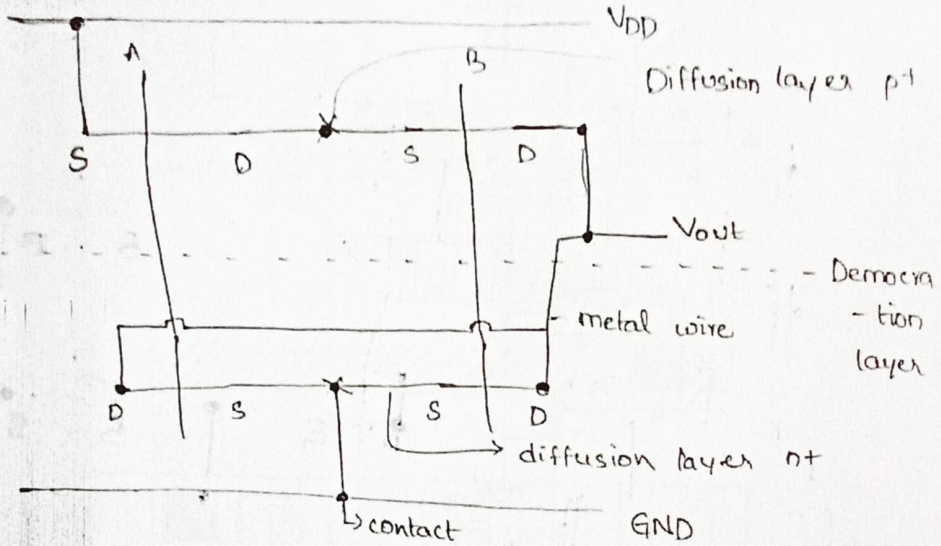 VDD
A
B
Diffusion layer p+
S
D
S
D
Vout
Democra
- tion
layer
metal wire
D
S
S
D
diffusion layer n+
contact
GND